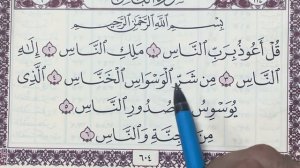 بِسْمِ ٱللَّهِ ٱلرَّحْمَٰنِ ٱلرَّحِيمِ
قُلْ أَعُوذُ بِرَبِّ ٱلنَّاسِ ١ مَلِكِ ٱلنَّاسِ ٢ إِلَٰهِ
ٱلنَّاسِ ٣ مِن شَرِّ ٱلْوَسْوَاسِ ٱلْخَنَّاسِ ٤ ٱلَّذِى
يُوَسْوِسُ صُدُورِ ٱلنَّاسِ ٥
مِنَ ٱلْجِنَّةِ وَٱلنَّاسِ ٦
٦٠٤